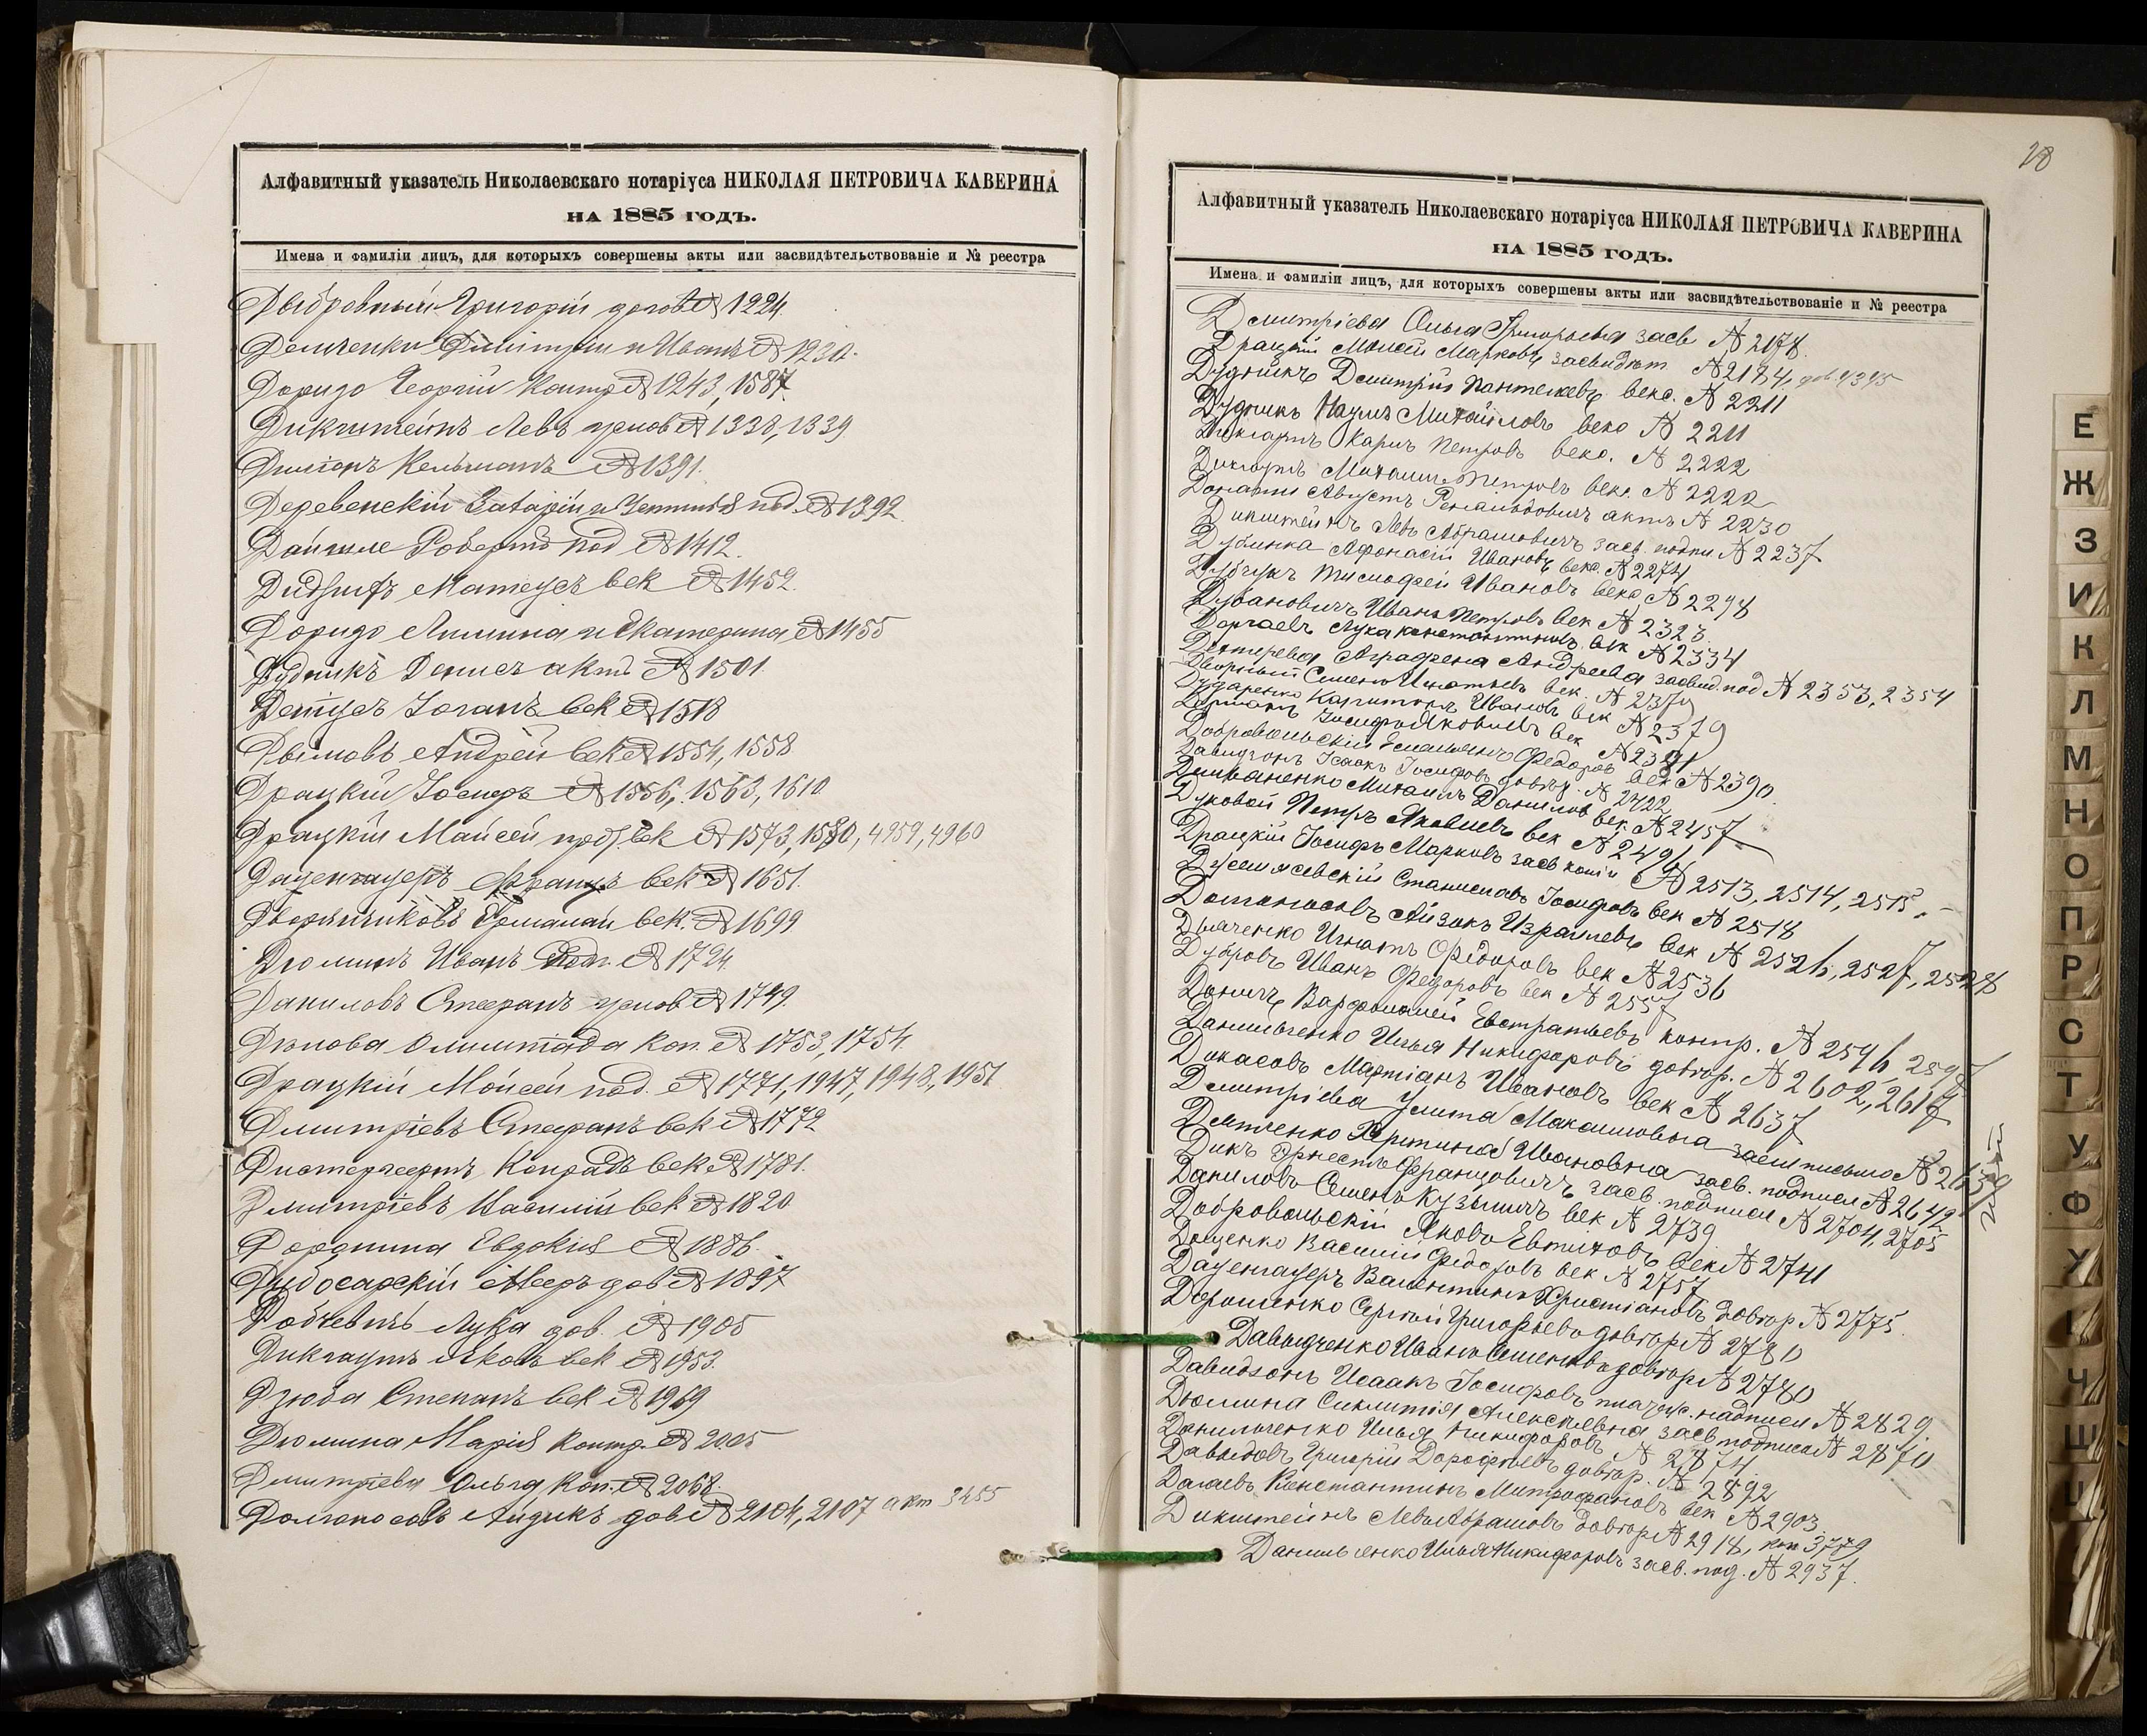 Алфавитный указатель Николаевскаго нотаріуса НИКОЛАЯ ПЕТРОВИЧА КАВЕРИНА
НА 1885 ГОДЪ.
Имена и фамиліи лицъ, для которыхъ совершены акты или засвидѣтельствованіе и № реестра
Григорій № 1224
Демченко Димитрій и Иванъ № 1230.
Доридо Георгій контр № 1243, 1587.
Дикштейнъ Левъ № 1338, 1339
Кельманъ № 1391.
Деревенскій Захарій и № 1392.
Робертъ под № 1412.
Матеусъ век № 1452.
Доридо и Екатерина № 1455
Дудникъ Денисъ актъ № 1501
Іоганъ век № 1518
Дымовъ Андрей век № 1554, 1558
Драцкій Іосифъ № 1556, 1563, 1610
Драцкій Мойсей век № 1573, 1580, 4959, 4960
Даценгауеръ Францъ век № 1651.
Дворянчиковъ век. № 1699
Дюминъ Иванъ № 1724.
Даниловъ Стефанъ № 1749
Коп. № 1753, 1754.
Драцкій Мойсей под. № 1771, 1947, 1948, 1951
Дмитріевъ Стефанъ век № 1772
Конрадъ век № 1781.
Дмитріевъ Василій век № 1820
Евдокія № 1886.
Мееръ дов № 1897
Лука дов. № 1905
Дикгаутъ Яковъ век № 1953.
Дзюба Степанъ век № 1969
Дюмина Марія контр. № 2005
Дмитріева Ольга коп. № 2068.
дов № 2104, 2107 акт 3455
28
Алфавитный указатель Николаевскаго нотаріуса НИКОЛАЯ ПЕТРОВИЧА КАВЕРИНА
НА 1885 ГОДЪ.
Имена и фамиліи лицъ, для которыхъ совершены акты или засвидѣтельствованіе и № реестра
Дмитріева Ольга Григорьевна засв № 2178.
Драцкій Моисей Марковъ № 2184, дов. 4395
Дудникъ Дмитрій Пантелеевъ векс. № 2211
Дудникъ Наумъ Михайловъ векс № 2211
Дикгаутъ Карлъ Петровъ векс. № 2222
Дикгаутъ Михаилъ Петровъ векс. № 2222
Донатти Августъ актъ № 2230
Дикштейнъ Левъ Абрамовичъ засв. подпи. № 2237
Дубинка Афонасій Ивановъ векс. № 2274
Тимофей Ивановъ векс № 2298
Дубановичъ Иванъ Петровъ век № 2323.
Доргаевъ Лука Константиновъ век № 2334
Дехтерева Аграфена Андреева засвид. под № 2353, 2354
Дворный Семенъ Игнатьевъ век. № 2370
Дударенко Капитонъ Ивановъ век № 2379
Іосифъ Яковлевъ век № 2381
Добровольскій Емельянъ Федоров век № 2390
Давидзонъ Исаакъ Іосифовъ довѣр. № 2422
Михаилъ Даниловъ век. № 2457
Дуковой Петръ Яковлевъ век № 2496
Драцкій Іосифъ Марковъ засв копіи № 2513, 2514, 2515
Станиславъ Іосифовъ век № 2518
Айзокъ Израилевъ век № 2526, 2527, 2528
Дьяченко Игнатъ Федоровъ век № 2536
Дубровъ Иванъ Федоровъ век № 2557
Доничъ Варфоломей Евстратьевъ контр. № 2596, 2597
Данильченко Илья Никифоровъ довѣр. № 2602, 2617
Докасовъ Мартіанъ Ивановъ век № 2637
Дмитріева Улита Максимовна засв письмо № 2639
Демченко Христина Ивановна засв. подписи № 2642
Дикъ Эрнестъ Францовичъ засв. подписи № 2704, 2705
Даниловъ Семенъ Кузьмичъ век № 2739
Добровольскій Яковъ Евтиховъ век № 2741
Доценко Василій Федоровъ век № 2757
Даценгауеръ Валентинъ Христіановъ довѣр № 2775
Дорошенко Сергѣй Григорьевъ довѣр № 2780
Давыдченко Иванъ Семеновъ довѣр № 2780
Давидзонъ Исаакъ Іосифовъ надписи № 2829.
Дюмина Алексѣевна засв. подписи № 2870
Данильченко Илья Никифоровъ № 2874
Давыдовъ Григорій Дорофѣевъ довѣр. № 2892
Далаевъ Константинъ Митрофановъ век № 2903
Дикштейнъ Левъ Абрамовъ довѣр № 2918, коп 3779
Данильченко Илья Никифоровъ засв. под. № 2937.
Е
Ж
З
И
К
Л
М
Н
О
П
Р
С
Т
У
Ф
Ч
Ш